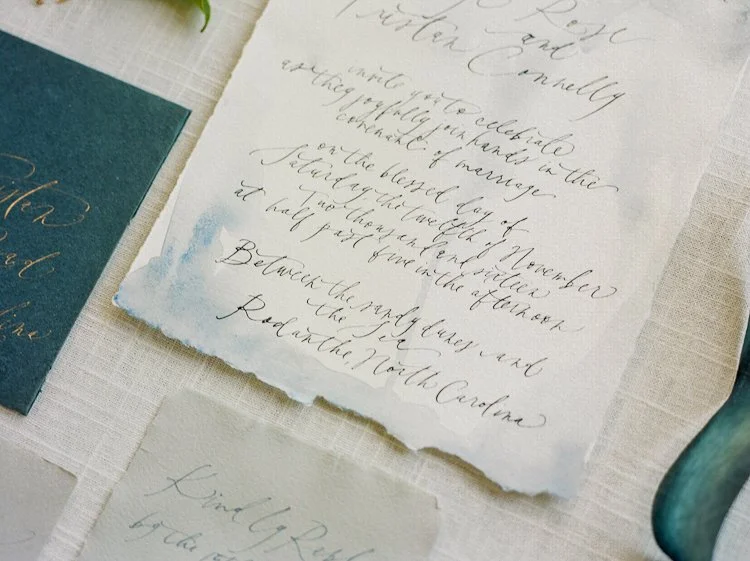 Rose
and
Tristan Connelly
invite you to celebrate
as they joyfully join hands in the
covenant of marriage
on the blessed day of
Saturday, the twelfth of November
Two thousand and sixteen
at half past five in the afternoon
Between the sandy dunes and
the sea
Rodanthe, North Carolina
Kindly Reply
by the